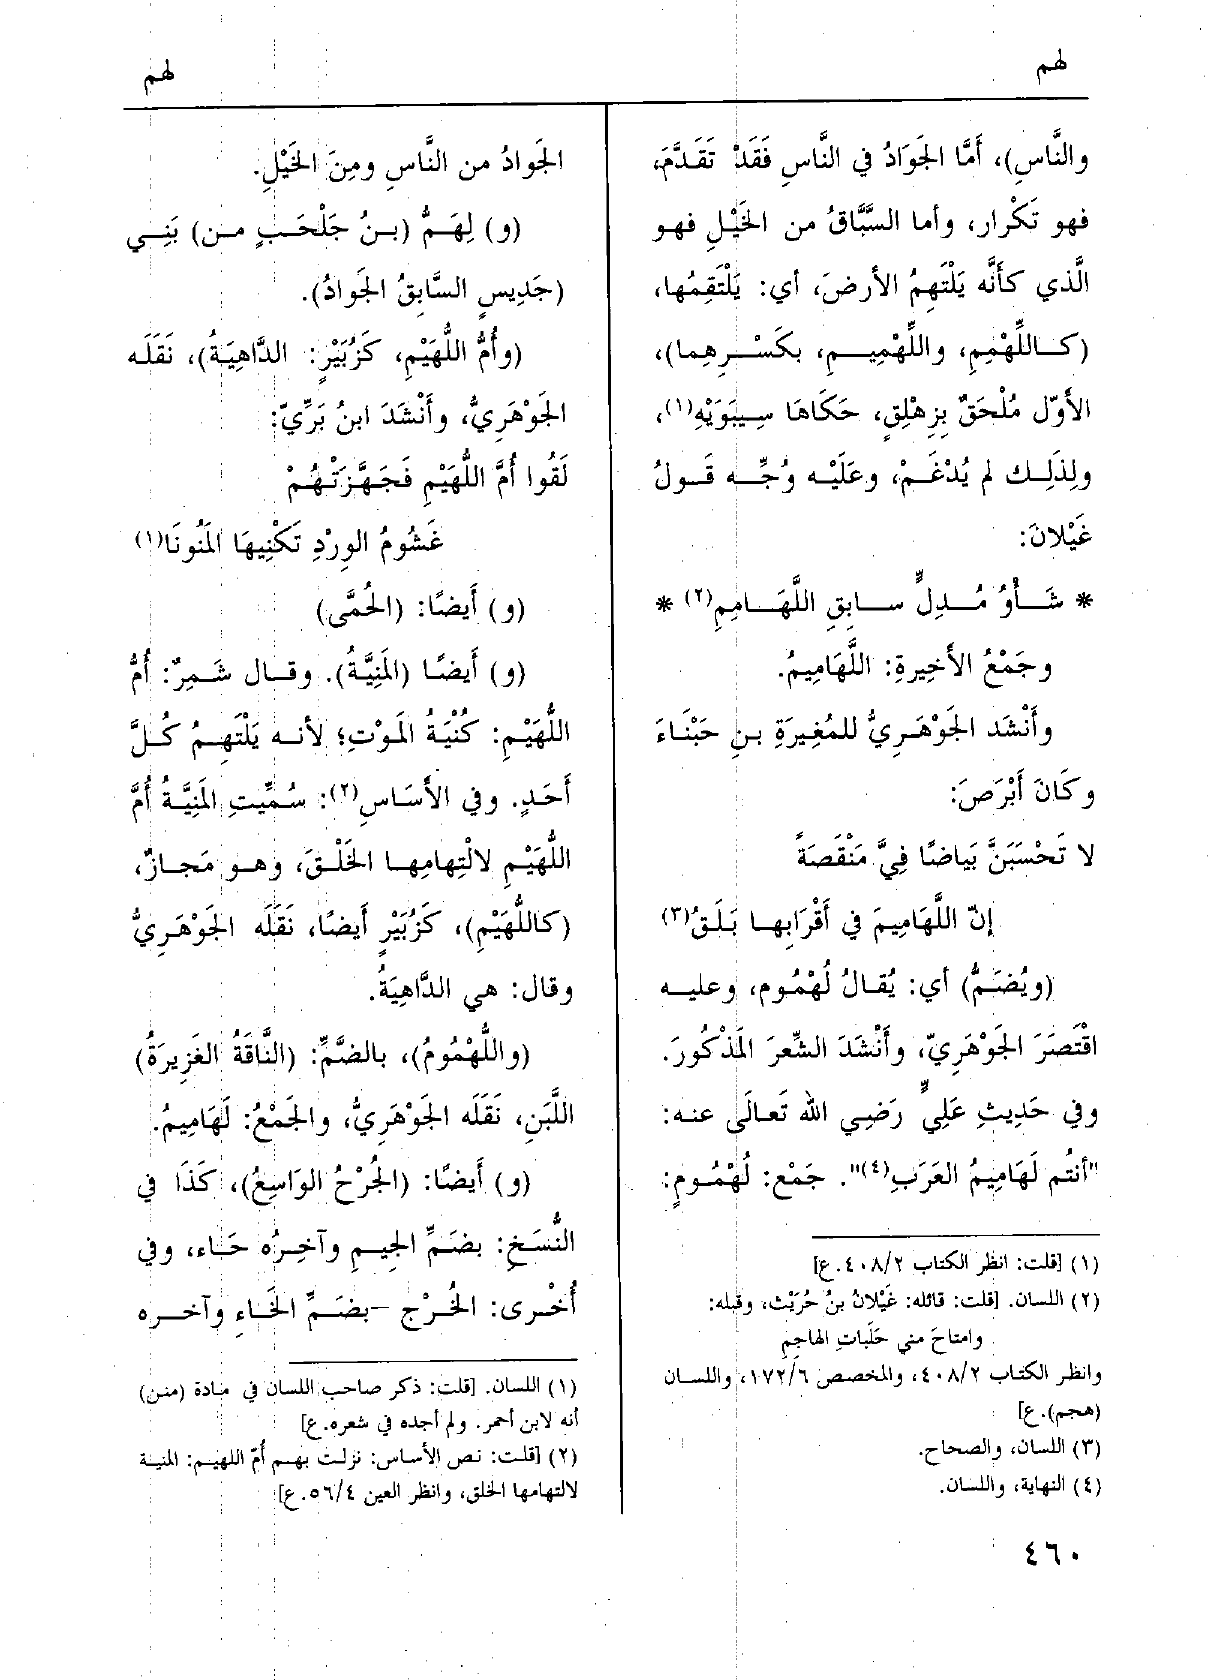 لهم
لهم
والنَّاسِ)، أَمَّا الجَوَادُ في النَّاسِ فَقَدْ تَقَدَّمَ،
فهو تَكْرار، وأما السَّبَّاقُ من الخَيْلِ فهو
الَّذي كأنَّه يَلْتَهِمُ الأرضَ، أي: يَلْتَقِمُها،
(كـاللِّهْمِمِ، واللِّهْمِيـمِ، بكَسْـرِهِما)،
الأوّل مُلْحَقٌ بِزِهْلِقٍ، حَكَاهَا سِيبَوَيْهِ(١)،
ولِذَلِـك لم يُدْغَـمْ، وعَلَيْـه وُجِّـه قَـولُ
غَيْلانَ:
* شَـأْوُ مُـدِلٍّ سـابِقِ اللَّهَـامِمِ(٢) *
وجَمْعُ الأخِيرةِ: اللَّهَامِيمُ.
وأَنْشَد الجَوْهَـرِيُّ للمُغِيرَةِ بـنِ حَبْنَـاءَ
وكَانَ أَبْرَصَ:
لا تَحْسَبَنَّ بَياضًا فِيَّ مَنْقَصَةً
إنّ اللَّهَامِيمَ في أَقْرَابِهـا بَـلَقُ(٣)
(ويُضَـمُّ) أي: يُقـالُ لُهْمُـوم، وعليـه
اقْتَصَرَ الجَوْهَرِيّ، وأَنْشَدَ الشِّعرَ المَذْكُورَ.
وفي حَدِيثِ عَلِيٍّ رَضِـي الله تَعـالَى عنـه:
"أنتُم لَهَامِيمُ العَرَبِ(٤)". جَمْع: لُهْمُـومٍ:
(١) [قلت: انظر الكتاب ٤٠٨/٢.ع]
(٢) اللسان. [قلت: قائله: غَيْلانُ بنُ حُرَيْث، وقبله:
وامتاحَ مني حَلَباتِ الهاجِمِ
وانظر الكتاب ٤٠٨/٢، والمخصص ١٧٢/٦، واللسان
(هجم).ع]
(٣) اللسان، والصحاح.
(٤) النهاية، واللسان.
الجَوادُ من النَّاسِ ومِنَ الخَيْلِ.
(و) لِهَـمٌّ (بـنُ جَلْحَـبٍ مـن) بَنِـي
(جَدِيسٍ السَّابِقُ الجَوادُ).
(وأُمُّ اللُّهَيْمِ، كَزُبَيْرٍ: الدَّاهِيَةُ)، نَقَلَـه
الجَوْهَرِيُّ، وأَنْشَدَ ابنُ بَرِّيّ:
لَقُوا أُمَّ اللُّهَيْمِ فَجَـهَّـزَتْـهُـمْ
غَـشُومُ الوِرْدِ تَكْنِيهَا المَنُونَا(١)
(و) أَيضًا: (الحُمَّى)
(و) أَيضًـا (المَنِيَّةُ). وقـال شَـمِرٌ: أُمُّ
اللُّهَيْمِ: كُنْيَةُ المَوْتِ؛ لأنـه يَلْتَهِـمُ كُـلَّ
أَحَـدٍ. وفي الأَسَاسِ(٢): سُمِّيتِ المَنِيَّـةُ أُمَّ
اللُّهَيْمِ لالْتِهامِهـا الخَلْـقَ، وهـو مَجـازٌ،
(كاللُّهَيْمِ)، كَزُبَيْرٍ أَيضًا، نَقَلَه الجَوْهَـرِيُّ
وقال: هي الدَّاهِيَةُ.
(واللُّهْمُومُ)، بالضَّمِّ: (النَّاقَةُ الغَزِيرَةُ)
اللَّبَنِ، نَقَلَه الجَوْهَرِيُّ، والجَمْعُ: لَهَامِيمُ.
(و) أَيضًا: (الجُرْحُ الوَاسِعُ)، كَذَا في
النُّسَخِ: بضَمِّ الجِيـمِ وآخِرُه حَـاء، وفي
أُخْـرى: الخُـرْج -بضَـمِّ الخَـاءِ وآخـره
(١) اللسان. [قلت: ذكر صاحب اللسان في مادة (منن)
أنه لابن أحمر. ولم أجده في شعره.ع]
(٢) [قلت: نص الأساس: نزلت بهم أمّ اللهيم: المنية
لالتهامها الخلق، وانظر العين ٥٦/٤.ع]
٤٦٠